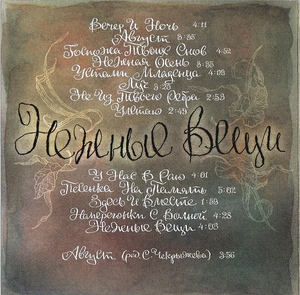 Вечер И Ночь 4:11
Август 3:35
Госпожа Твоих Снов 4:52
Нежная Осень 3:35
Устами Младенца 4:08
Луг 3:25
Не Из Твоего Ребра 2:53
Улетаю 2:43
Нежные Вещи
У Нас В Раю 4:01
Песенка На Память 5:02
Здесь И Вместе 1:58
Наперегонки С Волной 4:28
Нежные Вещи 4:03
Август (ред. С. Чекрыжева) 3:56